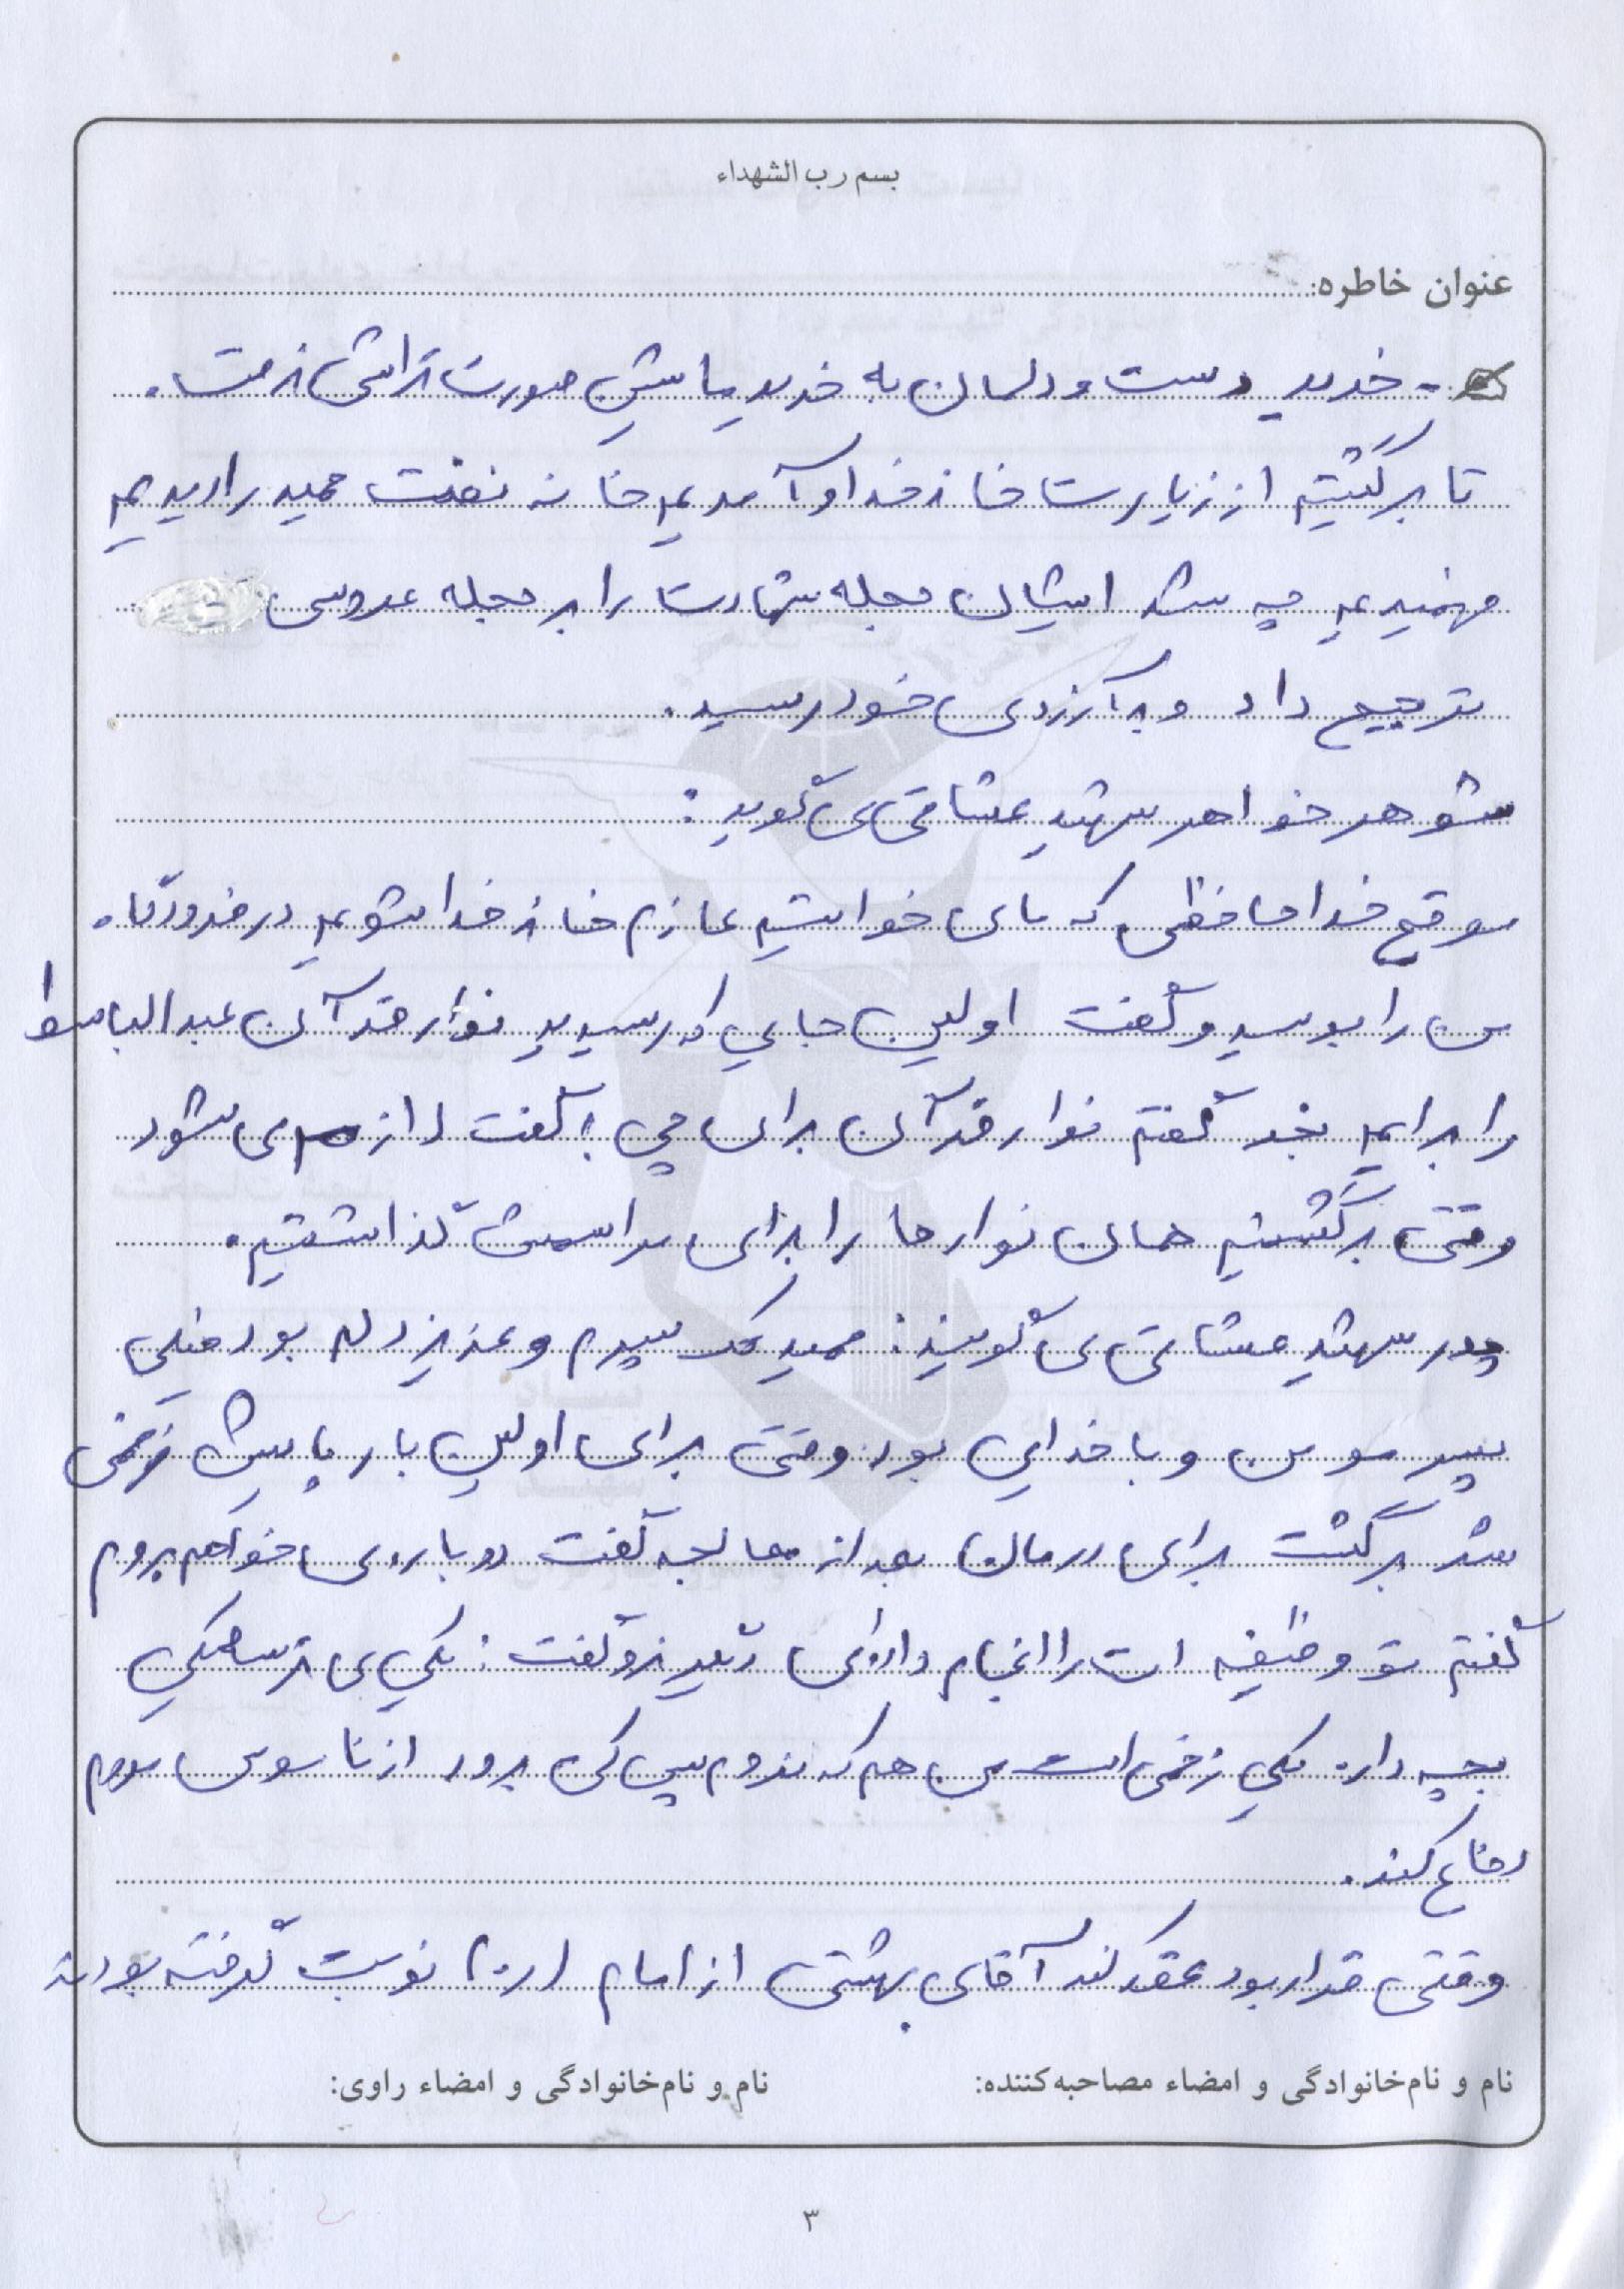 بسم رب الشهداء
عنوان خاطره:
- خرید دست و دلمان به خرید ماشین صورت تراشی نرفت.
تا برگشتیم از زیارت خانه خدا و آمدیم خانه نعش حمید را دیدیم
فهمیدیم چه شد ایشان حجله شهادت را بر حجله عروسی
ترجیح داد و به آرزوی خود رسید.
شوهر خواهر شهید مشتاقی می گوید:
موقع خداحافظی که ما می خواستیم عازم خانه خدا شویم در فرودگاه
من را بوسید و گفت اولین جایی که رسیدید نوار قرآن عبدالباسط
را برایم بخر گفتم نوار قرآن برای چی؟ گفت لازم می شود
وقتی برگشتیم همان نوارها را برای مراسمش گذاشتیم.
پدر شهید مشتاقی می گویند: حمید تک پسرم و عزیز دلم بود خیلی
پسر مومن و با خدایی بود وقتی برای اولین بار پایش زخمی
شد برگشت برای درمان بعد از معالجه گفت دوباره می خواهم بروم
گفتم تو وظیفه ات را انجام داده ای و گفت: یکی می ترسه یکی
بچه داره یکی زخمی است من هم که نروم پس کی برود از ناموس مردم
دفاع کند.
وقتی قرار بود عقد کند آقای بهشتی از امام (ره) نوبت گرفته بودند
نام و نام‌خانوادگی و امضاء مصاحبه‌کننده:
نام و نام‌خانوادگی و امضاء راوی:
۳